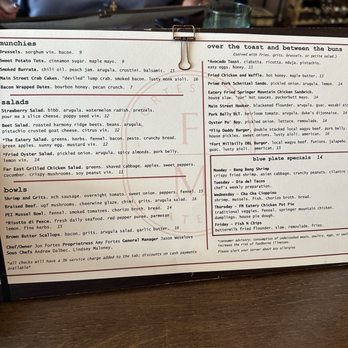 munchies
Brussels. sorghum vin. bacon. 9
Sweet Potato Tots. cinnamon sugar. maple mayo. 9
Smoked Burrata. chili oil. peach jam. arugula. crostini. balsamic.
Main Street Crab Cakes. "deviled" lump crab. smoked bacon. lusty monk aioli.
Bacon Wrapped Dates. bourbon honey. pecan crunch.
salads
Strawberry Salad. bibb. arugula. watermelon radish. pretzels.
pour me a slice cheese. poppy seed vin.
Beet Salad. roasted harmony ridge beets. arugula.
pistachio crusted goat cheese. citrus vin.
*The Eatery Salad. greens. herbs. fennel. bacon. pesto. crunchy bread.
green apples. sunny egg. mustard vin.
*Fried Oyster Salad. pickled onion. arugula. spicy almonds. pork belly.
lemon vin.
Far East Grilled Chicken Salad. greens. shaved cabbage. apples. sweet peppers.
cucumber. crispy mushrooms. soy peanut vin.
bowls
Shrimp and Grits. mch sausage. overnight tomato. sweet onion. peppers. fennel.
Braised Beef. ugf mushrooms. cheerwine glaze. chimi. grits. arugula salad.
PEI Mussel Bowl. fennel. smoked tomatoes. chorizo broth. bread.
*Risotto di Pesce. fresh daily seafood. red pepper puree. parmesan.
lemon. fine herbs.
Brown Butter Scallops. bacon. grits. arugula salad. garlic butter.
Chef/Owner Jon Fortes Proprietress Amy Fortes General Manager Jason Wesklovs
Sous Chefs Andrew Dalbec. Lindsey Maloney.
*all checks will have a 3% service charge added to the tab; discounts on cash payments
available*
over the toast and between the buns
(served with fries. grits. brussels. or petite salad.)
*Avocado Toast. ciabatta. ricotta. nduja. pistachio.
easy eggs. honey.
Fried Chicken and Waffle. hot honey. maple butter.
Prime Pork Schnitzel Sando. pickled onion. arugula.
Eatery Fried Springer Mountain Chicken Sandwich.
house slaw. hot sauces. pucker butt mayo.
Main Street Hooker. blackened flounder. arugula. guac. wasabi
Pork Belly BLT. heirloom tomato. arugula. duke's dijonnaise.
Oyster Po' Boy. pickled onion. lettuce. remoulade.
*Flip Daddy Burger. double stacked local wagyu beef. pork belly
house pickles. sweet onions. lusty aioli. american.
*Fort Millbilly DBL Burger. local wagyu beef. funions. jalapeño.
sweet onions. lusty aioli. american.
blue plate specials 14
Monday - Bang Bang Shrimp
crispy fried shrimp. asian cabbage. crunchy peanuts. cilantro
Tuesday - Dia del Tacos
chef's weekly preparation.
Wednesday - Cha Cha Cioppino
shrimp. mussels. fish. smoked tomatoes. chorizo broth. bread.
Thursday - FM Eatery Chicken Pot Pie
traditional veggies. fennel. springer mountain chicken.
dumplings. house pie dough.
Friday - Fish & Chips
buttermilk fried flounder. slaw. remoulade. fries.
*Consumer advisory: consumption of undercooked meats, poultry, eggs, or seafood
increase the risk of foodborne illnesses.
Please alert your server about any allergies